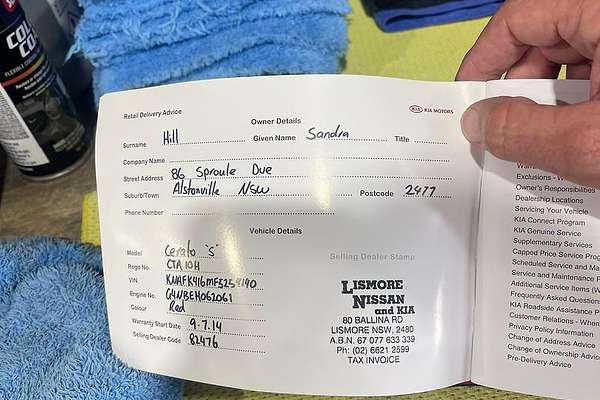 Retail Delivery Advice
KIA KIA MOTORS
Owner Details
Surname Hill Given Name Sandra Title
Company Name
Street Address 86 Sproule Dve
Suburb/Town Alstonville NSW Postcode 2477
Phone Number
Vehicle Details
Model Cerato "S"
Rego No. CTA10H
VIN
Engine No. G4NBEH062061
Colour Red
Warranty Start Date 9-7.14
Selling Dealer Code 82476
Selling Dealer Stamp
LISMORE
NISSAN
and KIA
80 BALLINA RD
LISMORE NSW, 2480
A.B.N. 67 077 633 339
Ph: (02) 6621 2599
TAX INVOICE
Exclusions - 
Owner's Responsibilities
Dealership Locations
Servicing Your Vehicle
KIA Connect Program
KIA Genuine Service
Supplementary Services
Capped Price Service
Scheduled Service and
Service and Maintenance
Additional Service Items
Frequently Asked Questions
KIA Roadside Assistance
Customer Relations -
Privacy Policy Information
Change of Address Advice
Change of Ownership
Pre-Delivery Advice